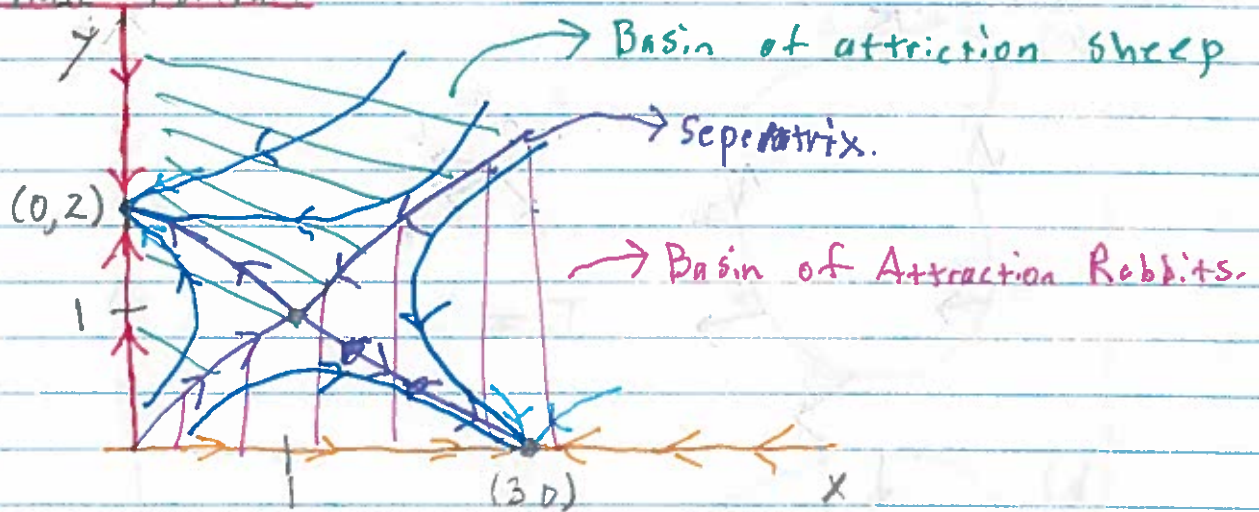 y
Basin of attriction sheep
Seperatrix.
(0,2)
Basin of Attraction Rabbits.
1
1
(3 0)
x